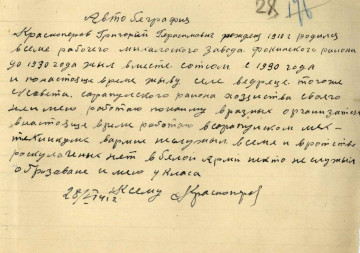 28 176
Авто Геграфия
Красноперов Григорий Герасимович рождец 1910 г родилса
вселе рабочего михаловского завода фокинского района
до 1930 года жил вместе сотсом с 1930 года
и понастояще время живу селе
совета. сарапулского района хозяйства своего
неимею работаю понайму вразных организаця
внастояще время работаю всарапулском
техникуме вармии неслужил всемя и вротстве
роскулаченых нет в белои Армии некто не служил
оброзование и мею 4 класа
1941 г. Ксему Красноперов